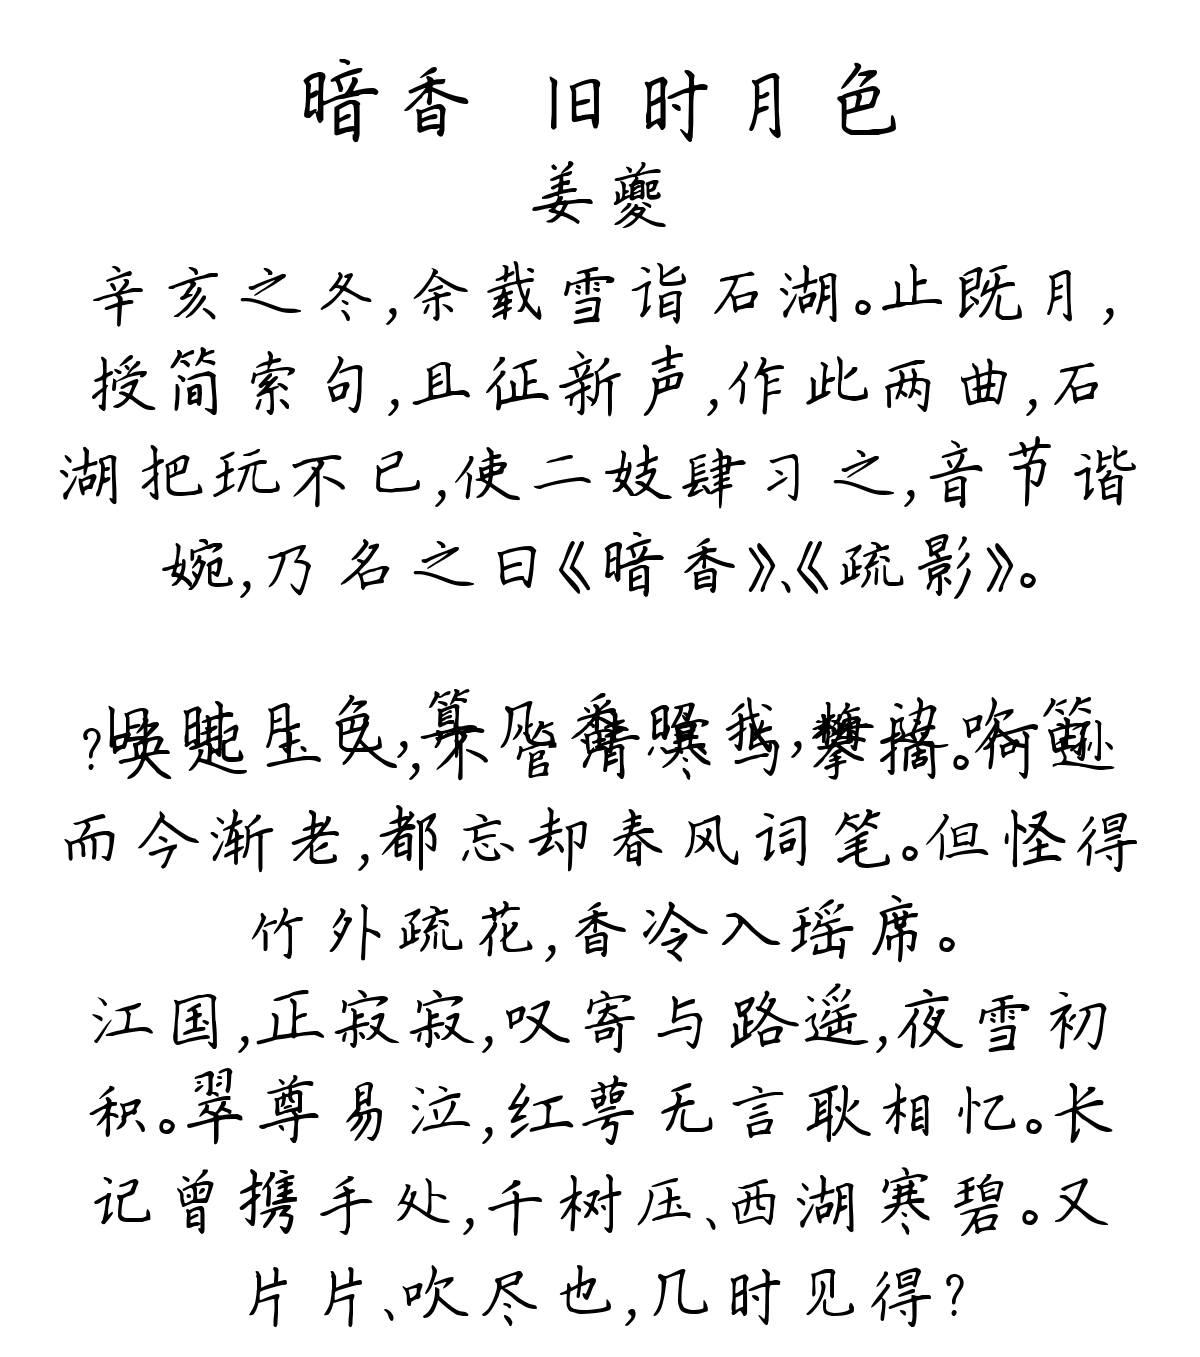 暗香 旧时月色
姜夔
辛亥之冬,余载雪诣石湖。止既月,
授简索句,且征新声,作此两曲,石
湖把玩不已,使二妓肆习之,音节谐
婉,乃名之曰《暗香》、《疏影》。
旧时月色,算几番照我,梅边吹笛
?唤起玉人,不管清寒与攀摘。何逊
而今渐老,都忘却春风词笔。但怪得
竹外疏花,香冷入瑶席。
江国,正寂寂,叹寄与路遥,夜雪初
积。翠尊易泣,红萼无言耿相忆。长
记曾携手处,千树压、西湖寒碧。又
片片、吹尽也,几时见得?